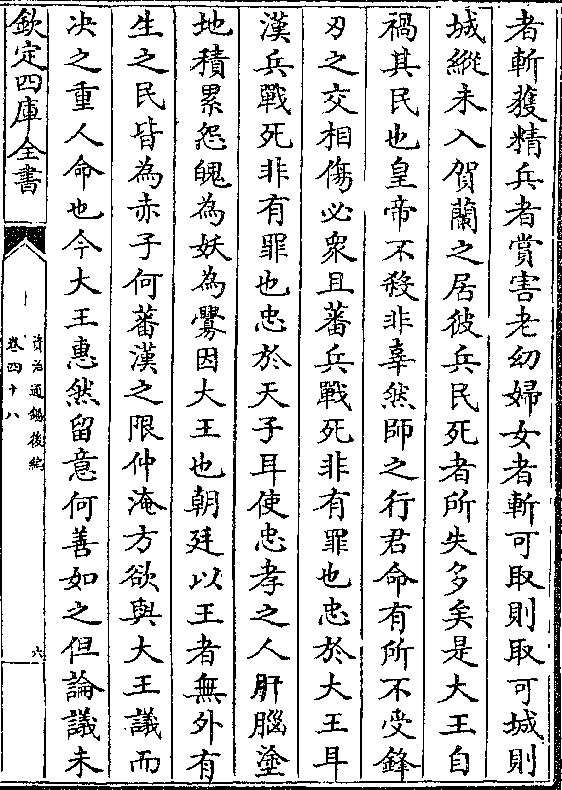 者斬獲精兵者賞害老幼婦女者斬可取則取可城則
城縱未入賀蘭之居彼兵民死者所失多矣是大王自
禍其民也皇帝不殺非辜然師之行君命有所不受鋒
刃之交相傷必衆且蕃兵戰死非有罪也忠於大王耳
漢兵戰死非有罪也忠於天子耳使忠孝之人肝腦塗
地積累怨魄為妖為釁因大王也朝廷以王者無外有
生之民皆為赤子何蕃漢之限仲淹方欲與大王議而
决之重人命也今大王惠然留意何善如之但論議未
欽定四庫全書
資治通鑑後編
卷四十八
六